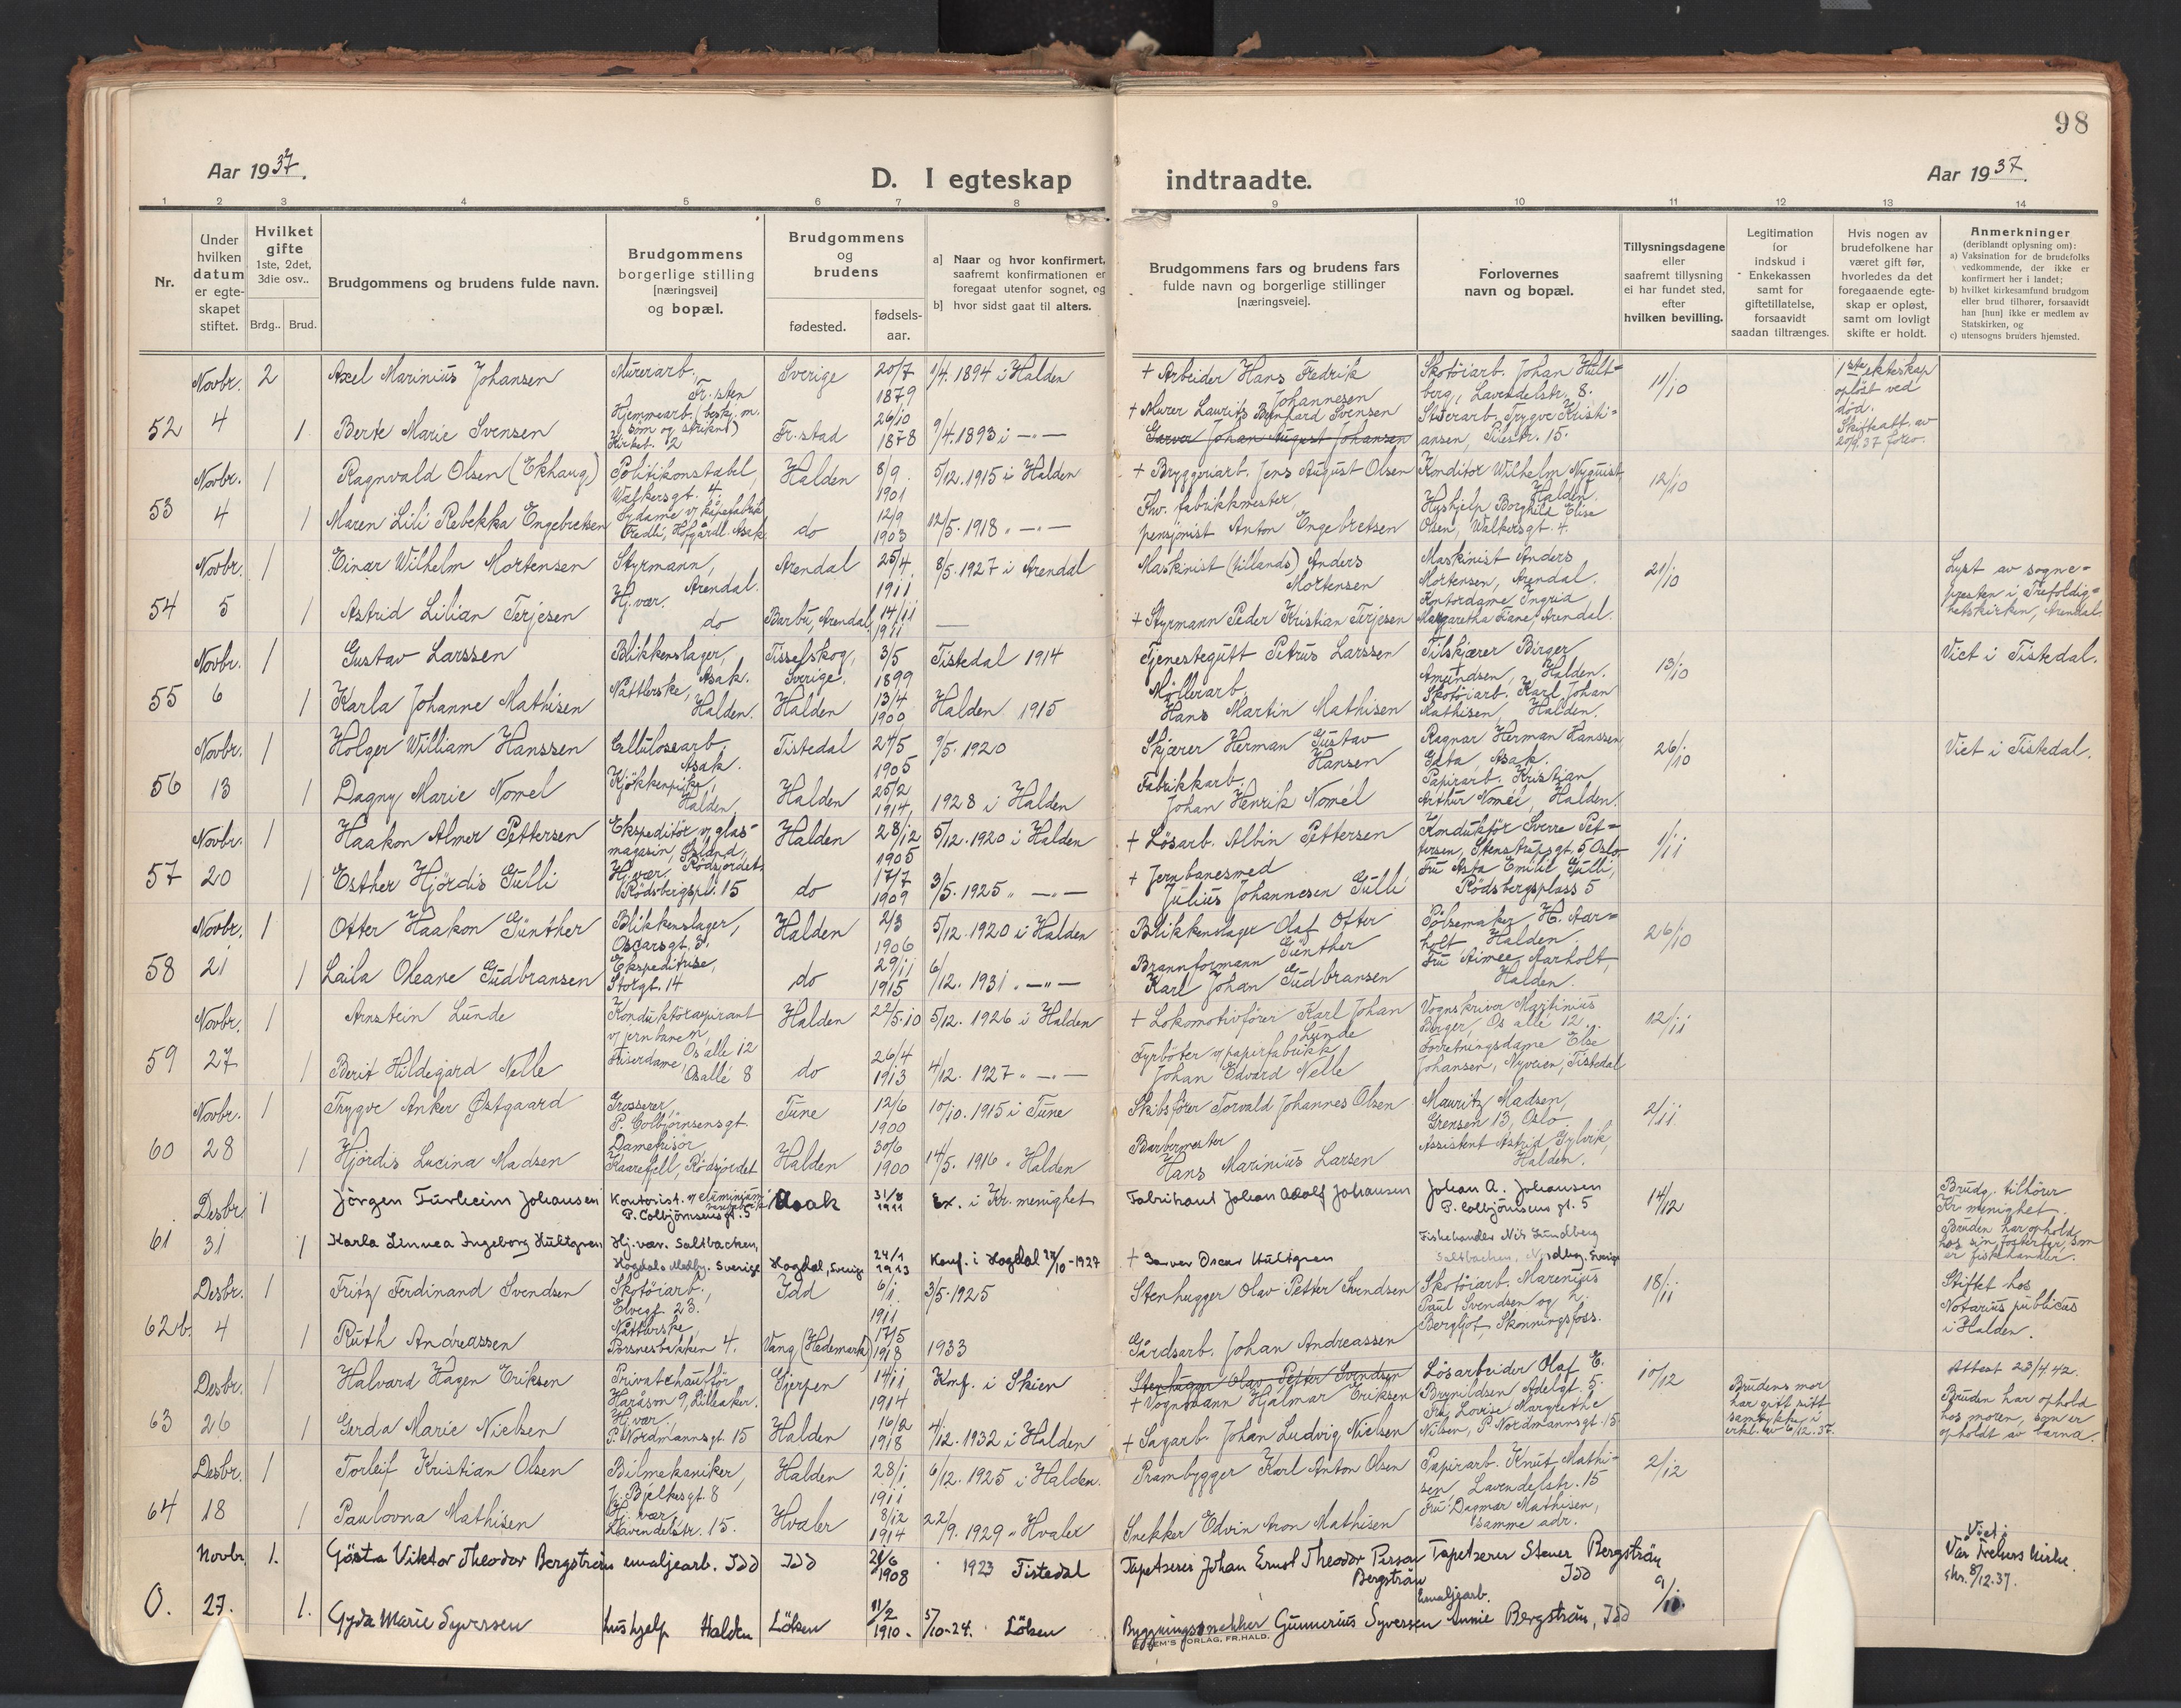 98
Aar 1937.
D. I egteskap indtraadte.
Aar 1937.
1 2 3 4 5 6 7 8 9 10 11 12 13 14
Nr.
Under hvilken datum er egteskapet stiftet.
Hvilket gifte 1ste, 2det, 3die osv..
Brdg.. Brud.
Brudgommens og brudens fulde navn.
Brudgommens borgerlige stilling [næringsvei] og bopæl.
Brudgommens og brudens
fødested.
fødsels-aar.
a] Naar og hvor konfirmert, saafremt konfirmationen er foregaat utenfor sognet, og
b] hvor sidst gaat til alters.
Brudgommens fars og brudens fars fulde navn og borgerlige stillinger [næringsveie].
Forlovernes navn og bopæl.
Tillysningsdagene eller saafremt tillysning ei har fundet sted, efter hvilken bevilling.
Legitimation for indskud i Enkekassen samt for giftetillatelse, forsaavidt saadan tiltrænges.
Hvis nogen av brudefolkene har været gift før, hvorledes da det foregaaende egteskap er opløst, samt om lovligt skifte er holdt.
Anmerkninger (deriblandt oplysning om):
a) Vaksination for de brudefolks vedkommende, der ikke er konfirmert her i landet;
b) hvilket kirkesamfund brudgom eller brud tilhører, forsaavidt han [hun] ikke er medlem av Statskirken, og
c) utensogns bruders hjemsted.
Novbr. 2 Axel Marinius Johansen Murerarb., Fr.sten Sverige 20/7 1879 1/4. 1894 i Halden + Arbeider Hans Fredrik Johannesen Skotöiarb. Johan Hultberg, Lavendelstr. 8. 11/10 1ste ekteskap oplöst ved död. Skifteatt. av 20/9.37 forev.
52 4 1 Berte Marie Svensen Hjemmearb. (besk. m. söm og strikn.) Kirket. 2 Fr.stad 26/10 1878 9/4. 1893 i -"- + Murer Laurits Bernhard Svensen Garver Johan August Johansen Stuerarb. Trygve Kristiansen, Pilestr. 15.
Novbr. 1 Ragnvald Olsen (Ekhaug) Politikonstabel, Walkersgt. 4 Halden 8/9 1901 5/12. 1915 i Halden + Bryggeriarb. Jens August Olsen Konditor Wilhelm Nyquist Halden. 12/10
53 4 1 Maren Lili Rebekka Engebretsen Sydame v/ kåpefabrik Fredli, Hofgårdl. Asak do 12/9 1903 12/5. 1918 " -"- Fhv. fabrikkmester, pensjonist Anton Engebretsen Hushjelp Borghild Elise Olsen, Walkersgt. 4.
Novbr. 1 Einar Wilhelm Mortensen Styrmann, Arendal. Arendal 25/4 1911 8/5. 1927 i Arendal Maskinist (tillands) Anders Mortensen Maskinist Anders Mortensen, Arendal. 21/10 Lyst av sogne-presten i Trefoldig-hetskirken, Arendal.
54 5 1 Astrid Lilian Terjesen Hj. vær. do Barbu, Arendal 14/11 1911 — + Styrmann Peder Kristian Terjesen Kontordame Ingrid Margaretha Kane, Arendal.
Novbr. 1 Gustav Larssen Blikkenslager, Asak. Tisselskog, Sverige. 3/5 1899 Tistedal 1914 Tjenestegutt Petrus Larssen Tilskjærer Birger Amundsen, Halden. 13/10 Viet i Tistedal.
55 6 1 Karla Johanne Mathisen Nåtlerske, Halden. Halden 13/4 1900 Halden 1915 Möllerarb. Hans Martin Mathisen Skotöiarb. Karl Johan Mathisen, Halden.
Novbr. 1 Holger William Hanssen Cellulosearb. Asak. Tistedal 24/5 1905 9/5. 1920 Skjærer Herman Gustav Hansen Ragnar Herman Hanssen Asak. 26/10 Viet i Tistedal.
56 13 1 Dagny Marie Nomel Kjökkenpike, Halden Halden 25/2 1914 1928 i Halden Fabrikkarb. Johan Henrik Nomél Papirarb. Kristian Arthur Nomél, Halden.
Novbr. 1 Haakon Almer Pettersen Ekspeditör v/ glas-magasin, Rödsjordet Halden 28/12 1905 5/12. 1920 i Halden + Lösarb. Albin Pettersen Konduktör Sverre Pettersen, Stenstrupsgt. 5 Oslo 1/11
57 20 1 Esther Hjördis Gulli Hj. vær. Rödsbergspl. 15 do 17/7 1909 3/5. 1925 " -"- + Jernbanesmed Julius Johannesen Gulli Fru Asta Emilie Gulli, Rödsbergsplass 5
Novbr. 1 Otter Haakon Günther Blikkenslager, Oscarsgt. 3. Halden 2/3 1906 5/12. 1920 i Halden Blikkenslager Olaf Otter Günther Pölsemaker H. Aarholt, Halden 26/10
58 21 1 Laila Oleane Gudbransen Ekspeditrise, Storgt. 14 do 29/11 1915 6/12. 1931 " -"- Brannformann Karl Johan Gudbransen Fru Aimee Aarholt, Halden.
Novbr. 1 Arnstein Lunde Konduktöraspirant v/ jernbanen, Os alle 12 Halden 22/5.10 5/12. 1926 i Halden + Lokomotivförer Karl Johan Lunde Vognskriver Martinius Berger, Os allé 12. 12/11
59 27 1 Berit Hildegard Nelle Friserdame, Os allé 8 do 26/4 1913 4/12. 1927 " -"- Fyrböter v/ papirfabrikk Johan Edvard Nelle Forretningsdame Else Johansen, Nyveien, Tistedal
Novbr. 1 Trygve Anker Østgaard Grosserer, P. Colbjörnsensgt. Tune 12/6 1900 10/10. 1915 i Tune Skibsförer Torvald Johannes Olsen Mauritz Madsen, Grensen 13, Oslo 2/11
60 28 1 Hjördis Lucina Madsen Damefrisör, Kaarefjell, Rödsjordet Halden 30/6 1900 14/5. 1916 " Halden Barbermester Hans Marinius Larsen Assistent Astrid Gylvik, Halden.
Desbr. 1 Jörgen Turheim Johansen Kontorist v/ aluminium P. Colbjörnsensgt. 5 Asak 31/8 1911 Ex. i Kr. menighet Fabrikant Johan Adolf Johansen Johan A. Johansen P. Colbjörnsens gt. 5 14/12 Brudg. tilhörer Kr. menighet.
61 31 1 Karla Linnea Ingeborg Hultgren Hj. vær. Saltbacken, Hogdal, Sverige 24/1 1913 Konf. i Hogdal 27/10-1927 + Garver Oscar Hultgren Fiskehandler Nils Lundberg Saltbacken, Sverige Bruden har ophold hos sin fosterfar, som er fiskehandler.
Desbr. 1 Fritz Ferdinand Svendsen Skotöiarb., Elvegt. 23. Idd 6/1 1911 3/5.1925 Stenhugger Olav Petter Svendsen Skotöiarb. Marenius Paul Svendsen og h. 18/11 Stiftet hos Notarius publicus i Halden.
62b. 4 1 Ruth Andreassen Nåtlerske Porsnesbakken 4. Vang (Hedemark) 17/5 1918 1933 Gårdsarb. Johan Andreassen Bergljot, Skonningsfoss.
Desbr. 1 Halvard Hagen Eriksen Privatchaufför Haråsvn 9, Lilleaker. Gjerpen 14/11 1914 Konf. i Skien Stenhugger Olav Petter Svendsen + Vognmann Hjalmar Eriksen Lösarbeider Olaf E. Brynildsen Adelgt. 5. 10/12 Brudens mor har gitt sitt samtykke i erkl. av 6/12.37. Attest 23/4.42.
63 26 1 Gerda Marie Nielsen Hj. vær. P. Nordmannsgt. 15 Halden 16/2 1918 4/12. 1932 i Halden + Sagarb. Johan Ludvig Nielsen Fru Lovise Margrethe Nilsen, P. Nordmannsgt. 15 Bruden har ophold hos moren, som er opholdt av barna.
Desbr. 1 Torleif Kristian Olsen Bilmekaniker, J. Bjelkesgt. 8 Halden 28/1 1911 6/12. 1925 i Halden. Prambygger Karl Anton Olsen Papirarb. Knut Mathisen, Lavendelstr. 15 2/12
64 18 1 Paulovna Mathisen Hj. vær, Lavendelstr. 15. Hvaler 8/12 1914 22/9. 1929 " Hvaler Snekker Edvin Aron Mathisen Fru Dagmar Mathisen, samme adr.
Novbr. 1. Gösta Viktor Theodor Bergström emaljearb. Idd Idd 28/6 1908 1923 Tistedal Tapetserer Johan Ernst Theodor Person Bergström Tapetserer Stener Bergström Idd 9/11 Viet i Vår Frelsers Kirke. 8/12.37.
O. 27. 1. Gyda Marie Syversen hushjelp Halden Löken 11/2 1910. 5/10-24. Löken Bygningssnekker Gunnerius Syversen Emaljearb. Annie Bergström, Idd
FORLAG, FR.HALD.